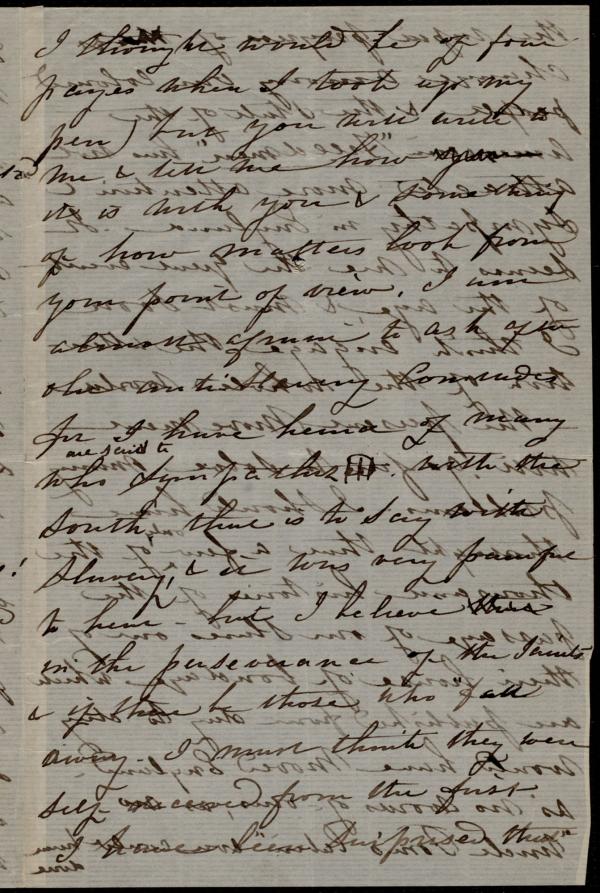 I thought would be of four
pages when I took up my
pen) but you will write to
me & tell me how
it is with you & something
of how matters look from
your point of view. I am
almost afraid to ask after
old anti Slavery Comrades
for I have heard of many
are said to
who sympathise with the
South, that is to say with
Slavery, & it was very painful
to hear - but I believe
in the perseverance of the Saints
& if there be those who "fall
away" I must think they were
self deceived from the first.
I have been surprised that